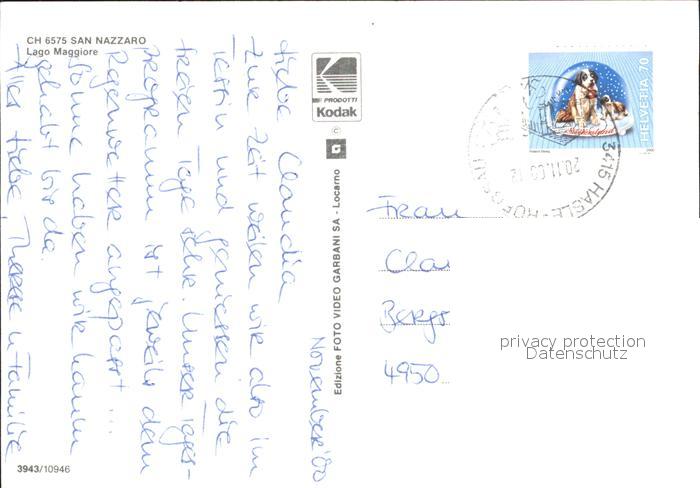 CH 6575 SAN NAZZARO
Lago Maggiore
November '00
Liebe Claudia
Zur Zeit weilen wir also im
Tessin und geniessen die
freien Tage sehr. Unser Tages-
programm ist jeweils dem
Regenwetter angepasst...
Sonne haben wir kaum
gehabt bis da.
Alles Liebe Therese u Familie
PRODOTTI
Kodak
©
G
Edizione FOTO VIDEO GARBANI SA - Locarno
HELVETIA 70
3415 HASLE
20.11.00 12
Frau
Clau
Bergs
4950
privacy protection
Datenschutz
3943/10946